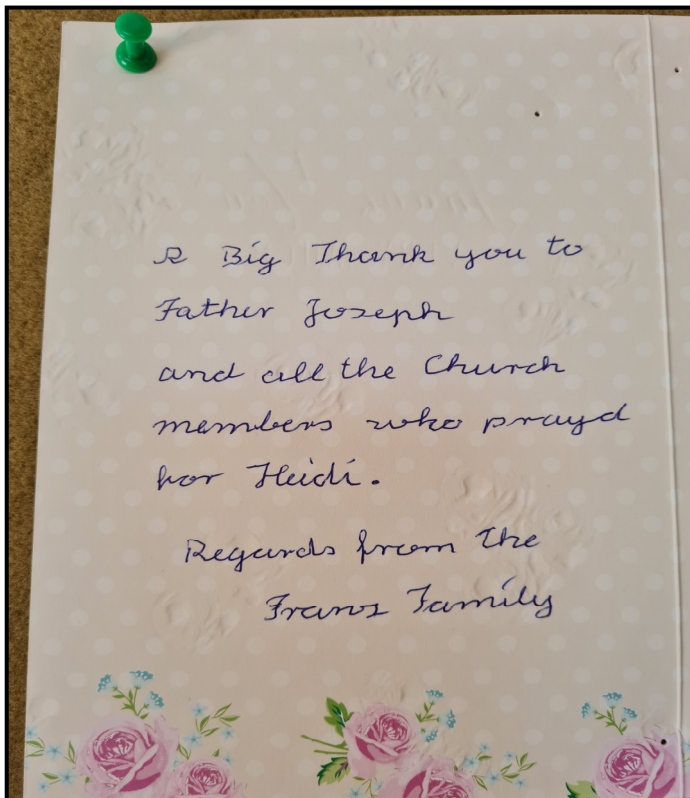 A Big Thank you to
Father Joseph
and all the Church
members who prayd
for Heidi.
Regards from the
Franz Family